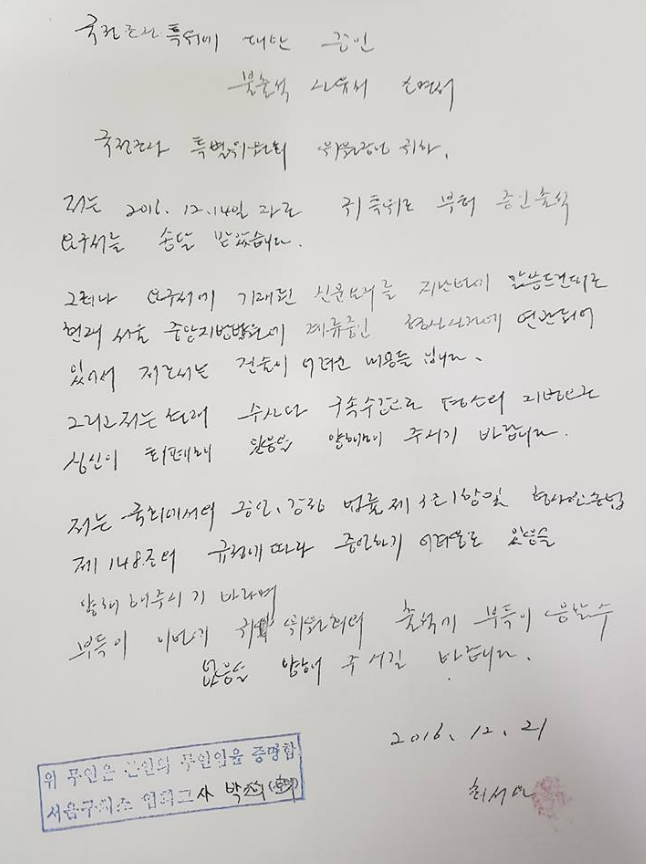 국정조사 특위에 대한 증인
불출석 사유서 소명서
국정조사 특별위원회 위원장님 귀하.
저는 2016. 12. 14일 자로 귀 특위로 부터 증인출석
요구서를 송달 받았습니다.
그러나 요구서에 기재된 신문요지를 지난번에 말씀드린대로
현재 서울 중앙지방법원에 계류중인 형사사건에 연관되어
있어서 저로서는 진술이 어려운 내용들 입니다.
그리고 저는 현재 수사와 구속수감으로 평소의 지병으로
심신이 회폐해 있음을 양해해 주시기 바랍니다.
저는 국회에서의 증언, 감정 법률 제3조1항일 형사소송법
제148조의 규정에 따라 증언하기 어려움도 있음을
양해해주시기 바라며
부득이 이번기 귀 위원회의 출석에 부득이 응할수
없음을 양해 주시길 바랍니다.
2016. 12. 21
최서원
위 무인은 본인의 무인임을 증명함
서울구치소 교사 박